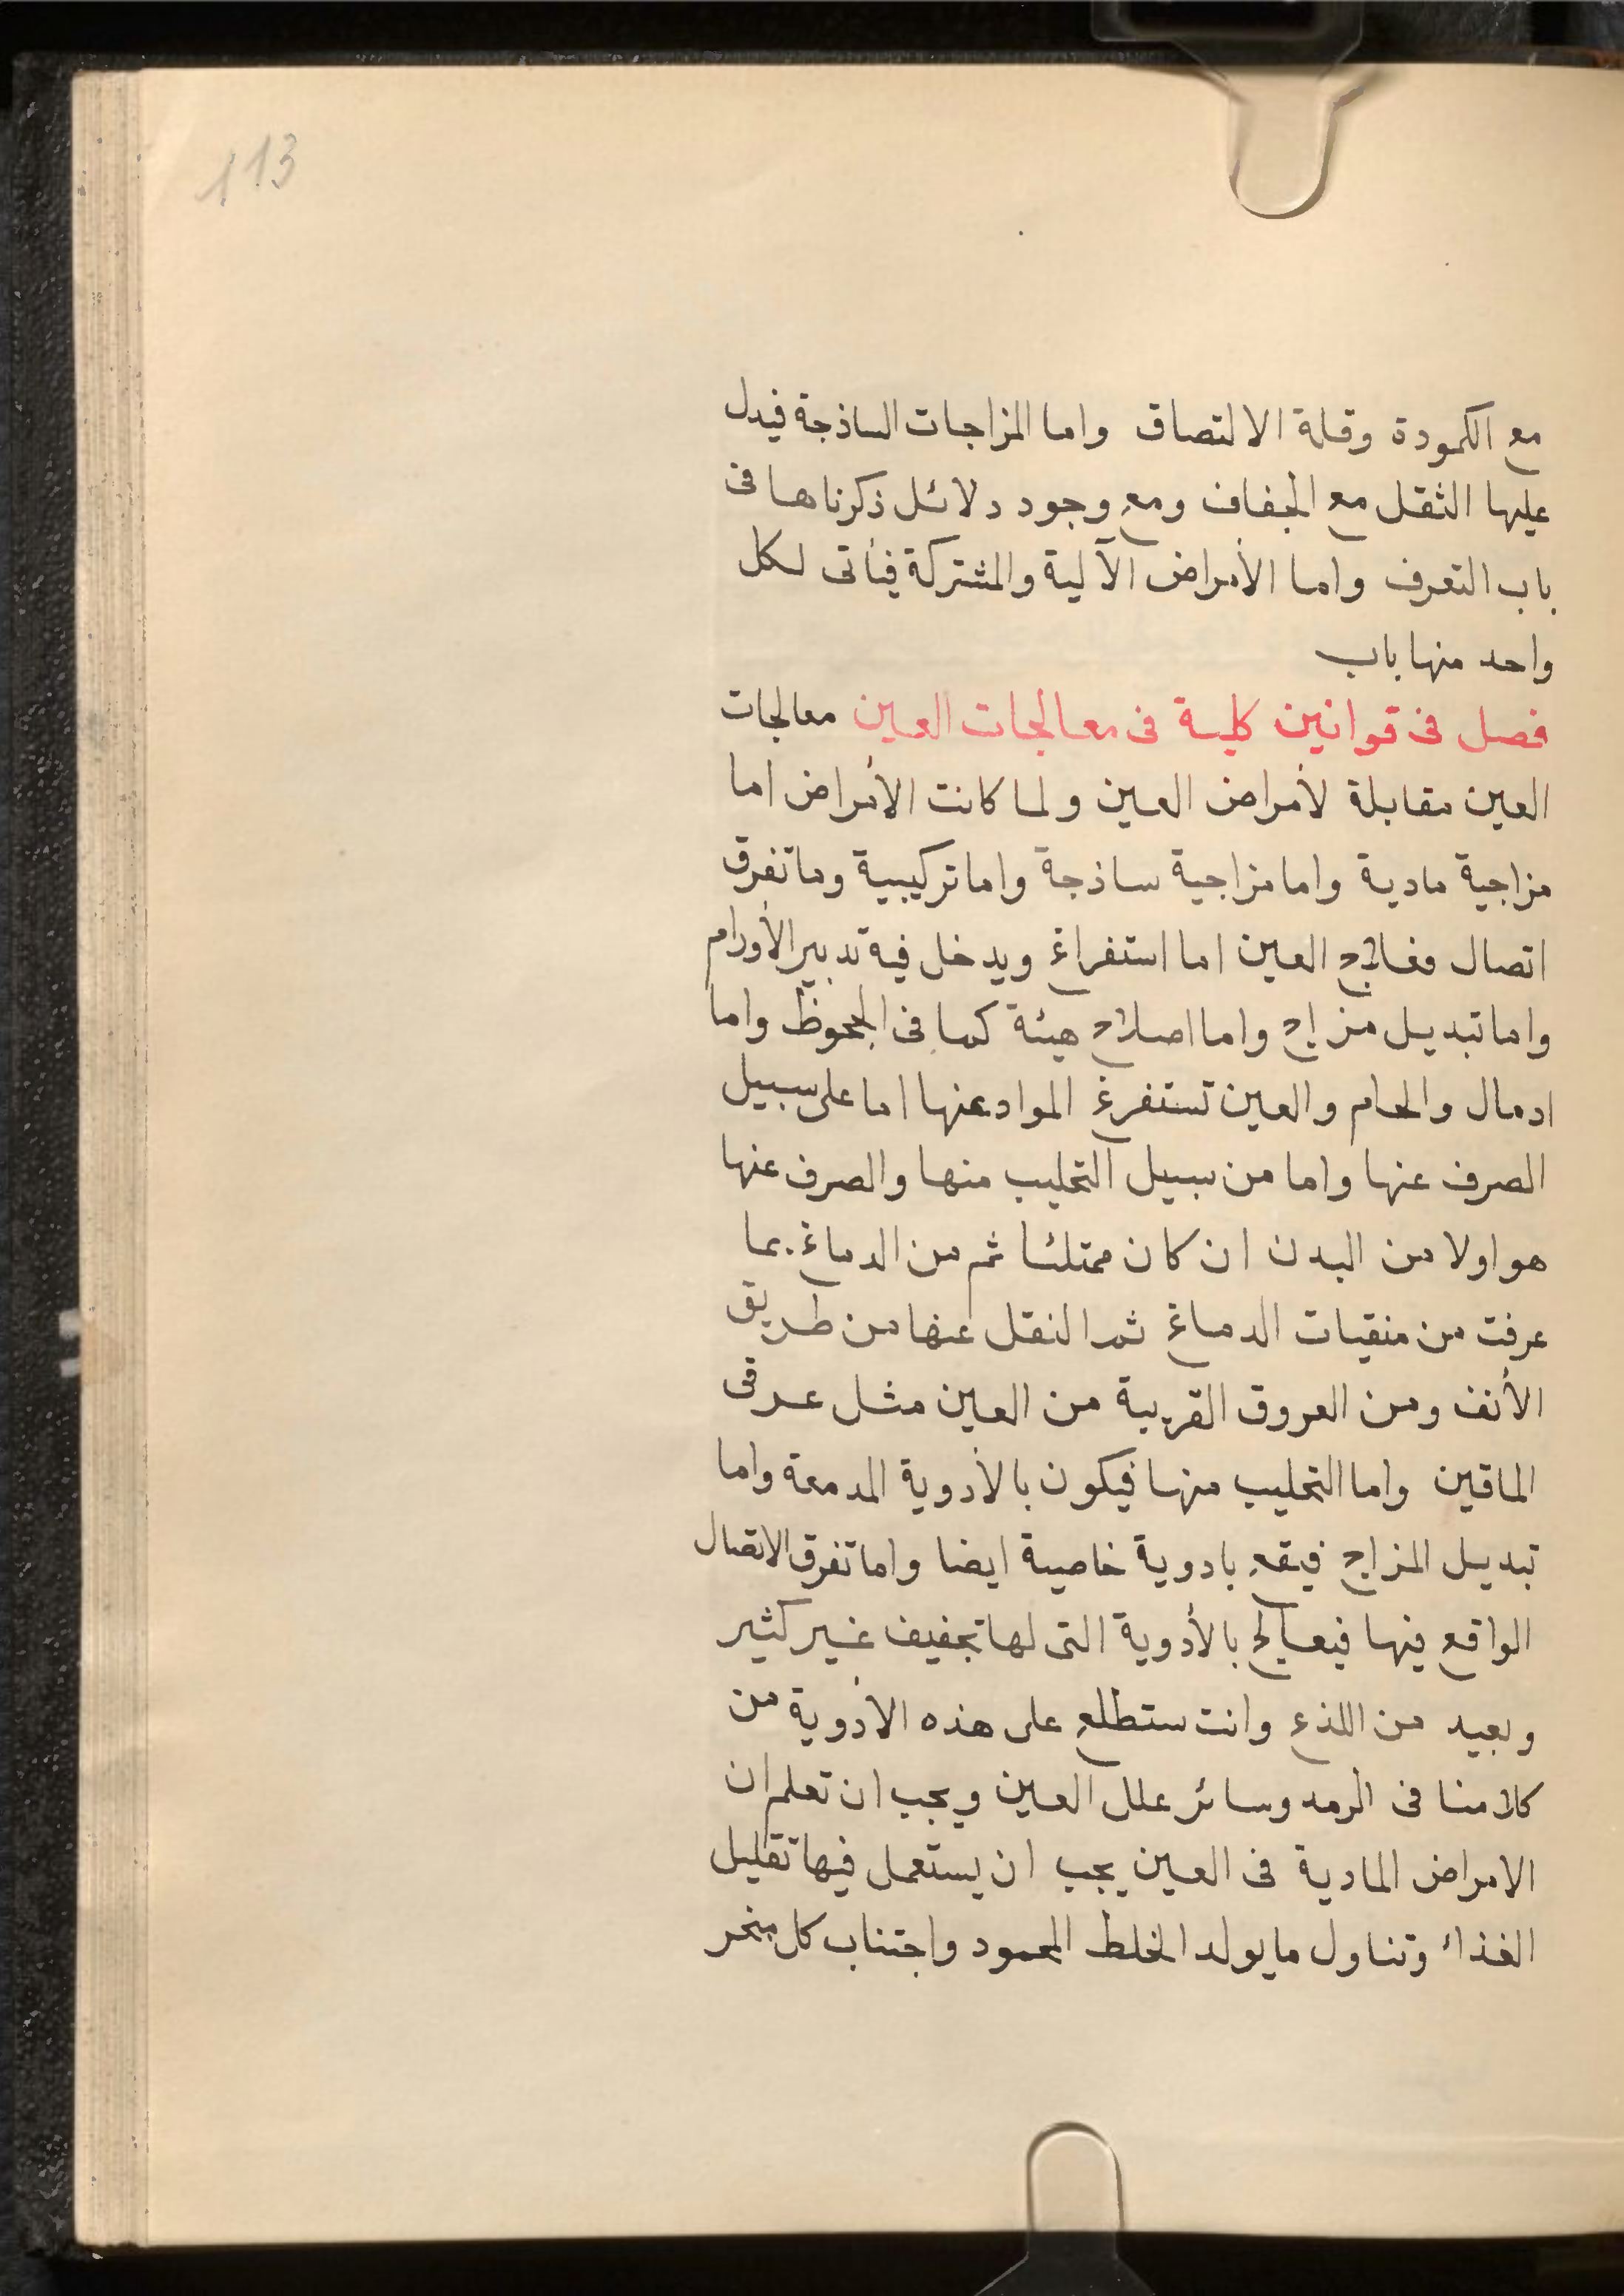 113
مع الكمودة وقلة الالتصاق واما المزاجات الساذجة فيدل
عليها الثقل مع الجفاف ومع وجود دلائل ذكرناها فى
باب التعرف واما الأمراض الآلية والمشتركة فيأتى لكل
واحد منها باب
فصل فى قوانين كلية فى معالجات العين معالجات
العين مقابلة لأمراض العين ولما كانت الأمراض اما
مزاجية مادية واما مزاجية ساذجة واما تركيبية وما تفرق
اتصال فعلاج العين اما استفراغ ويدخل فيه تدبير الأورام
واما تبديل مزاج واما اصلاح هيئة كما فى الجحوظ واما
ادمال والحام والعين تستفرغ المواد عنها اما على سبيل
الصرف عنها واما من سبيل التحليب منها والصرف عنها
هو اولا من البدن ان كان ممتلئا ثم من الدماغ بما
عرفت من منقيات الدماغ ثم النقل عنها من طريق
الأنف ومن العروق القريبة من العين مثل عرقى
الماقين واما التحليب منها فيكون بالأدوية المدمعة واما
تبديل المزاج فيقع بادوية خاصية ايضا واما تفرق الاتصال
الواقع فيها فيعالج بالأدوية التى لها تجفيف غير كثير
وبعيد من اللذع وانت ستطلع على هذه الأدوية من
كلامنا فى الرمد وسائر علل العين ويجب ان تعلم ان
الامراض المادية فى العين يجب ان يستعمل فيها تقليل
الغذاء وتناول ما يولد الخلط المحمود واجتناب كل مبخر